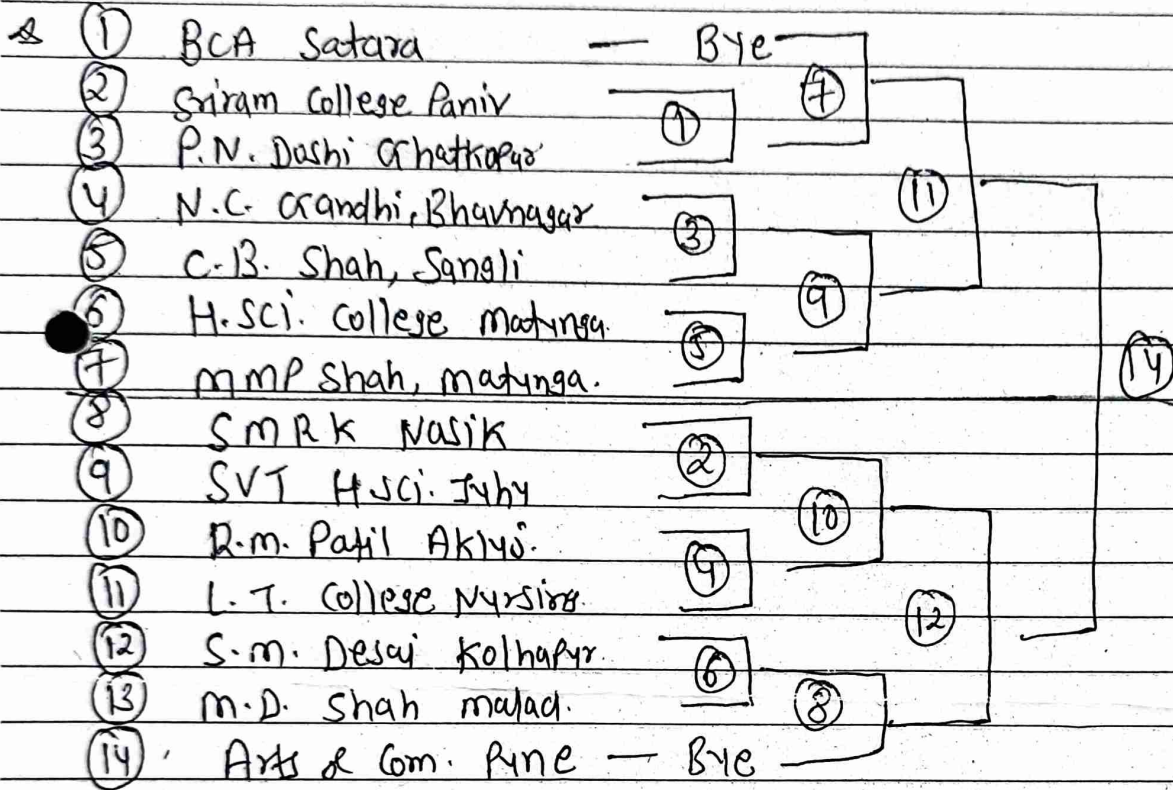 ① BCA Satara — Bye
② Sriram College Paniv
③ P.N. Doshi Ghatkopar
④ N.C. Gandhi, Bhavnagar
⑤ C.B. Shah, Sangli
⑥ H.Sci. College Matunga.
⑦ MMP Shah, Matunga.
⑧ SMRK Nasik
⑨ SVT H.Sci. Juhu
⑩ R.M. Patil Akluj.
⑪ L.T. College Nursing.
⑫ S.M. Desai Kolhapur.
⑬ M.D. Shah Malad.
⑭ Arts & Com. Pune — Bye
①
③
⑤
②
④
⑥
⑦
⑨
⑩
⑧
⑪
⑫
⑭